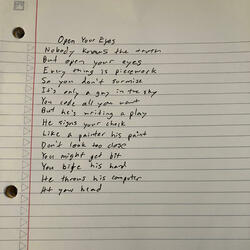 Open Your Eyes
Nobody knows the
But open your eyes
Every thing is piecework
So you don't surmise
It's only a guy in the sky
You code all you want
But he's writing a play
He signs your check
Like a painter his paint
Don't look too close
You might get bit
You bite his hand
He throws his computer
At your head